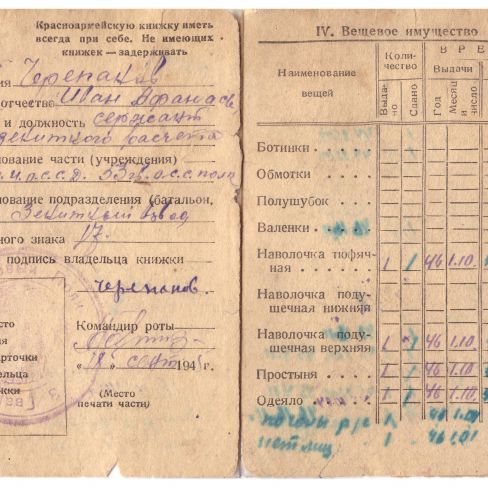 Красноармейскую книжку иметь
всегда при себе. Не имеющих
книжек — задерживать
ия Черепанов
отчество Иван Афанась
и должность сержант
зенитного расчета
нование части (учреждения)
53
нование подразделения (батальон,
Зенитный взвод
ного знака 17
подпись владельца книжки
Черепанов.
Командир роты
"18" сент 194 г.
сто
я
арточки
ельца
жки
(Место
печати части)
IV. Вещевое имущество
Наименование
вещей
Коли-
чество
ВРЕ
Выдачи
Выда-
но
Сдано
Год
Месяц
и
число
Ботинки
Обмотки
Полушубок
Валенки
Наволочка тюфяч-
ная 1 1 46 1.10
Наволочка поду-
шечная нижняя
Наволочка поду-
шечная верхняя 1 1 46 1.10
Простыня 1 1 46 1.10
Одеяло 1 1 46 1.10
1 46 1.01
1 46 1.01